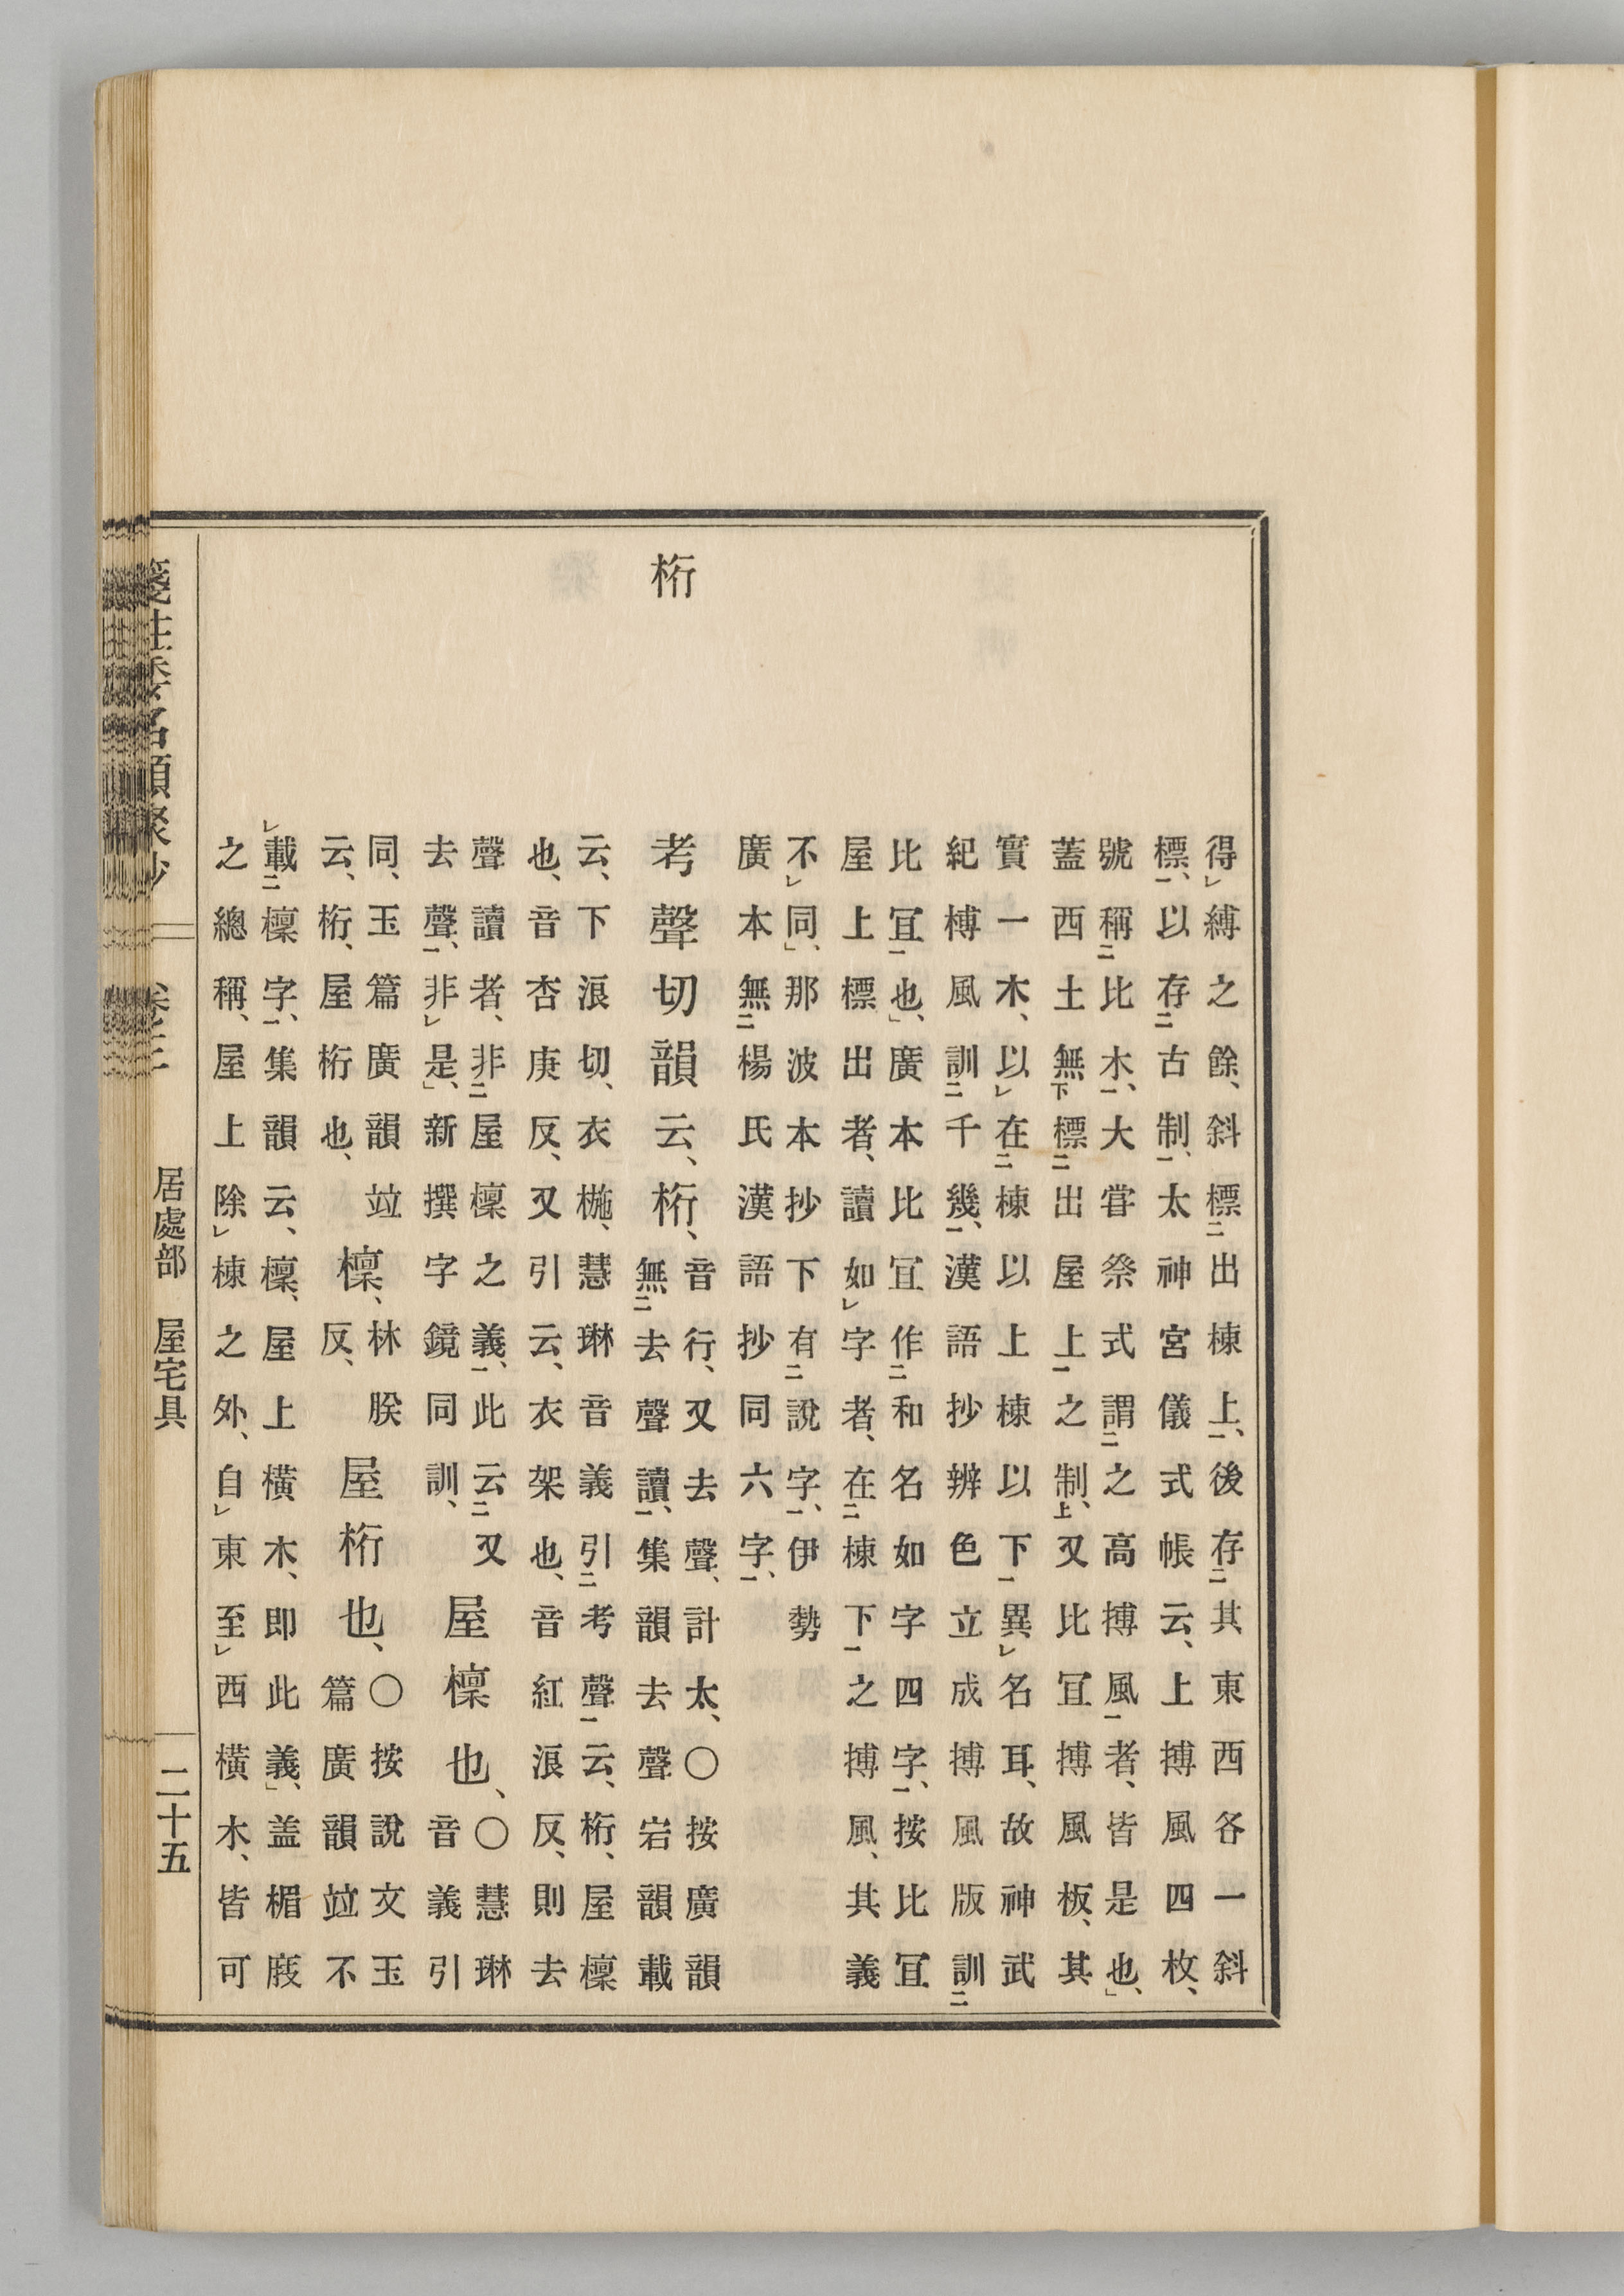 得レ縛之餘、斜標二出棟上一、後存二其東西各一斜
標一、以存二古制一、太神宮儀式帳云、上搏風四枚、
號稱二比木一、大甞祭式謂二之高搏風一者、皆是也、」
蓋西土無下標二出屋上一之制上、又比冝搏風板、其
實一木、以レ在二棟以上棟以下一異レ名耳、故神武
紀榑風訓二千幾一、漢語抄辨色立成搏風版訓二
比冝一也、」廣本比冝作二和名如字四字一、按比冝
屋上標出者、讀如レ字者、在二棟下一之搏風、其義
不レ同、」那波本抄下有二說字一、伊勢
廣本無二楊氏漢語抄同六字一、
桁
考聲切韻云、桁、
音行、又去聲、計太、〇按廣韻
無二去聲讀一、集韻去聲宕韻載
云、下浪切、衣椸、慧琳音義引二考聲一云、桁、屋檁
也、音杏庚反、又引云、衣架也、音紅浪反、則去
聲讀者、非二屋檁之義一、此云二又
去聲一、非レ是、」新撰字鏡同訓、
屋檁也、
〇慧琳
音義引
同、玉篇廣韻竝
云、桁、屋桁也、
檁、
林朕
反、
屋桁也、
〇按說文玉
篇廣韻竝不
レ載二檁字一、集韻云、檁、屋上橫木、即此義、」盖楣庪
之總稱、屋上除レ棟之外、自レ東至レ西橫木、皆可
箋註倭名類聚抄 卷三 居處部 屋宅具 二十五